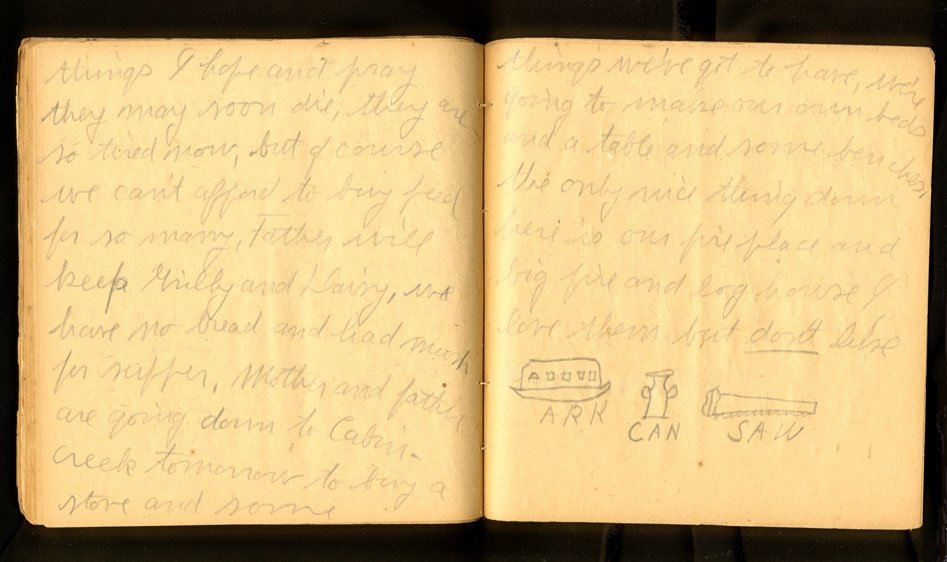 things I hope and pray
they may soon die, they are
so tired now, but of course
we can't afford to buy feed
for so many, Father will
keep Milly and Daisy, we
have no bread and had mush
for supper, Mother and father
are going down to Cabin-
creek tomorrow to buy a
stove and some
things we've got to have, we're
going to make our own beds
and a table and some benches,
the only nice thing down
here is our fire place and
big fire and log house I
love them but don't like
ARK
CAN
SAW